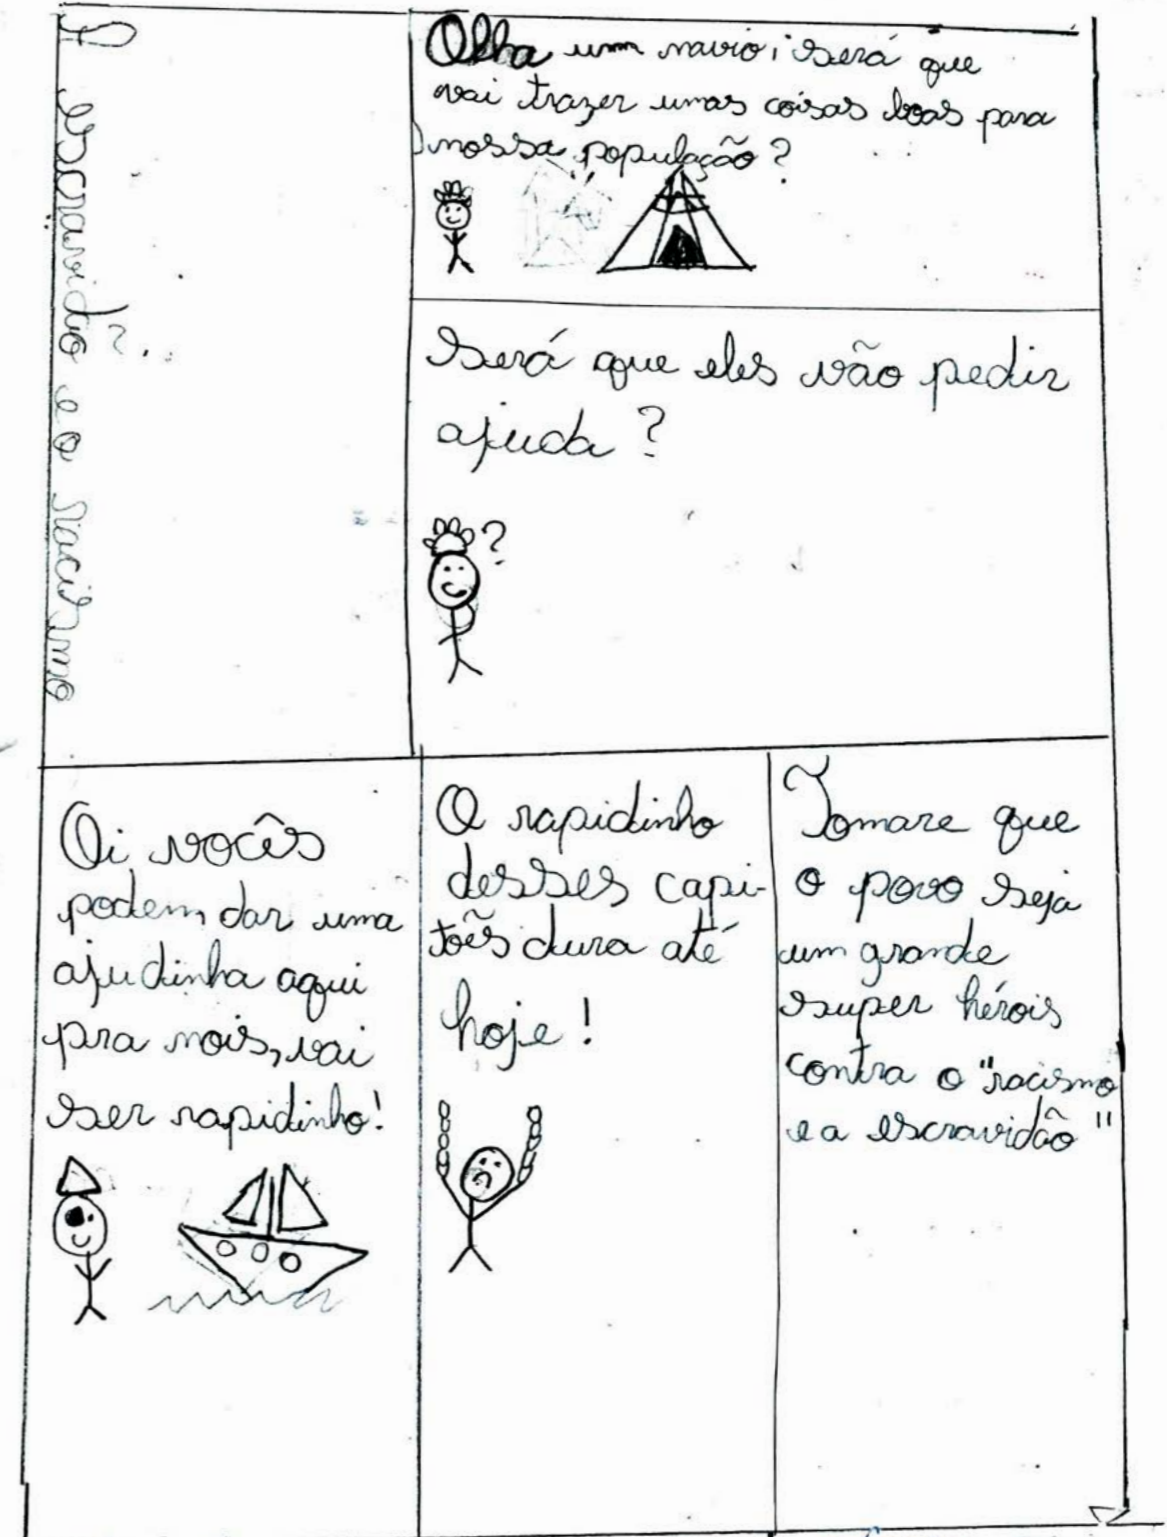 A escravidão e o racismo
Olha um navio, será que
vai trazer umas coisas boas para
nossa população?
Será que eles vão pedir
ajuda?
?
Oi vocês
podem dar uma
ajudinha aqui
pra nois, vai
ser rapidinho!
O rapidinho
desses capi-
tões dura até
hoje!
Tomare que
o povo seja
um grande
super hérois
contra o "racismo
e a escravidão"